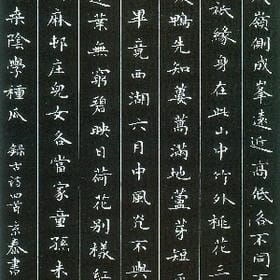 嶺側成峯遠近高低各不
祇緣身在此山中竹外桃花三
鴨先知蔞蒿滿地蘆芽短
畢竟西湖六月中風光不與
葉無窮碧映日荷花別樣紅
麻邨庄兒女各當家童孫未
桑陰學種瓜 錄古詩四首京泰書